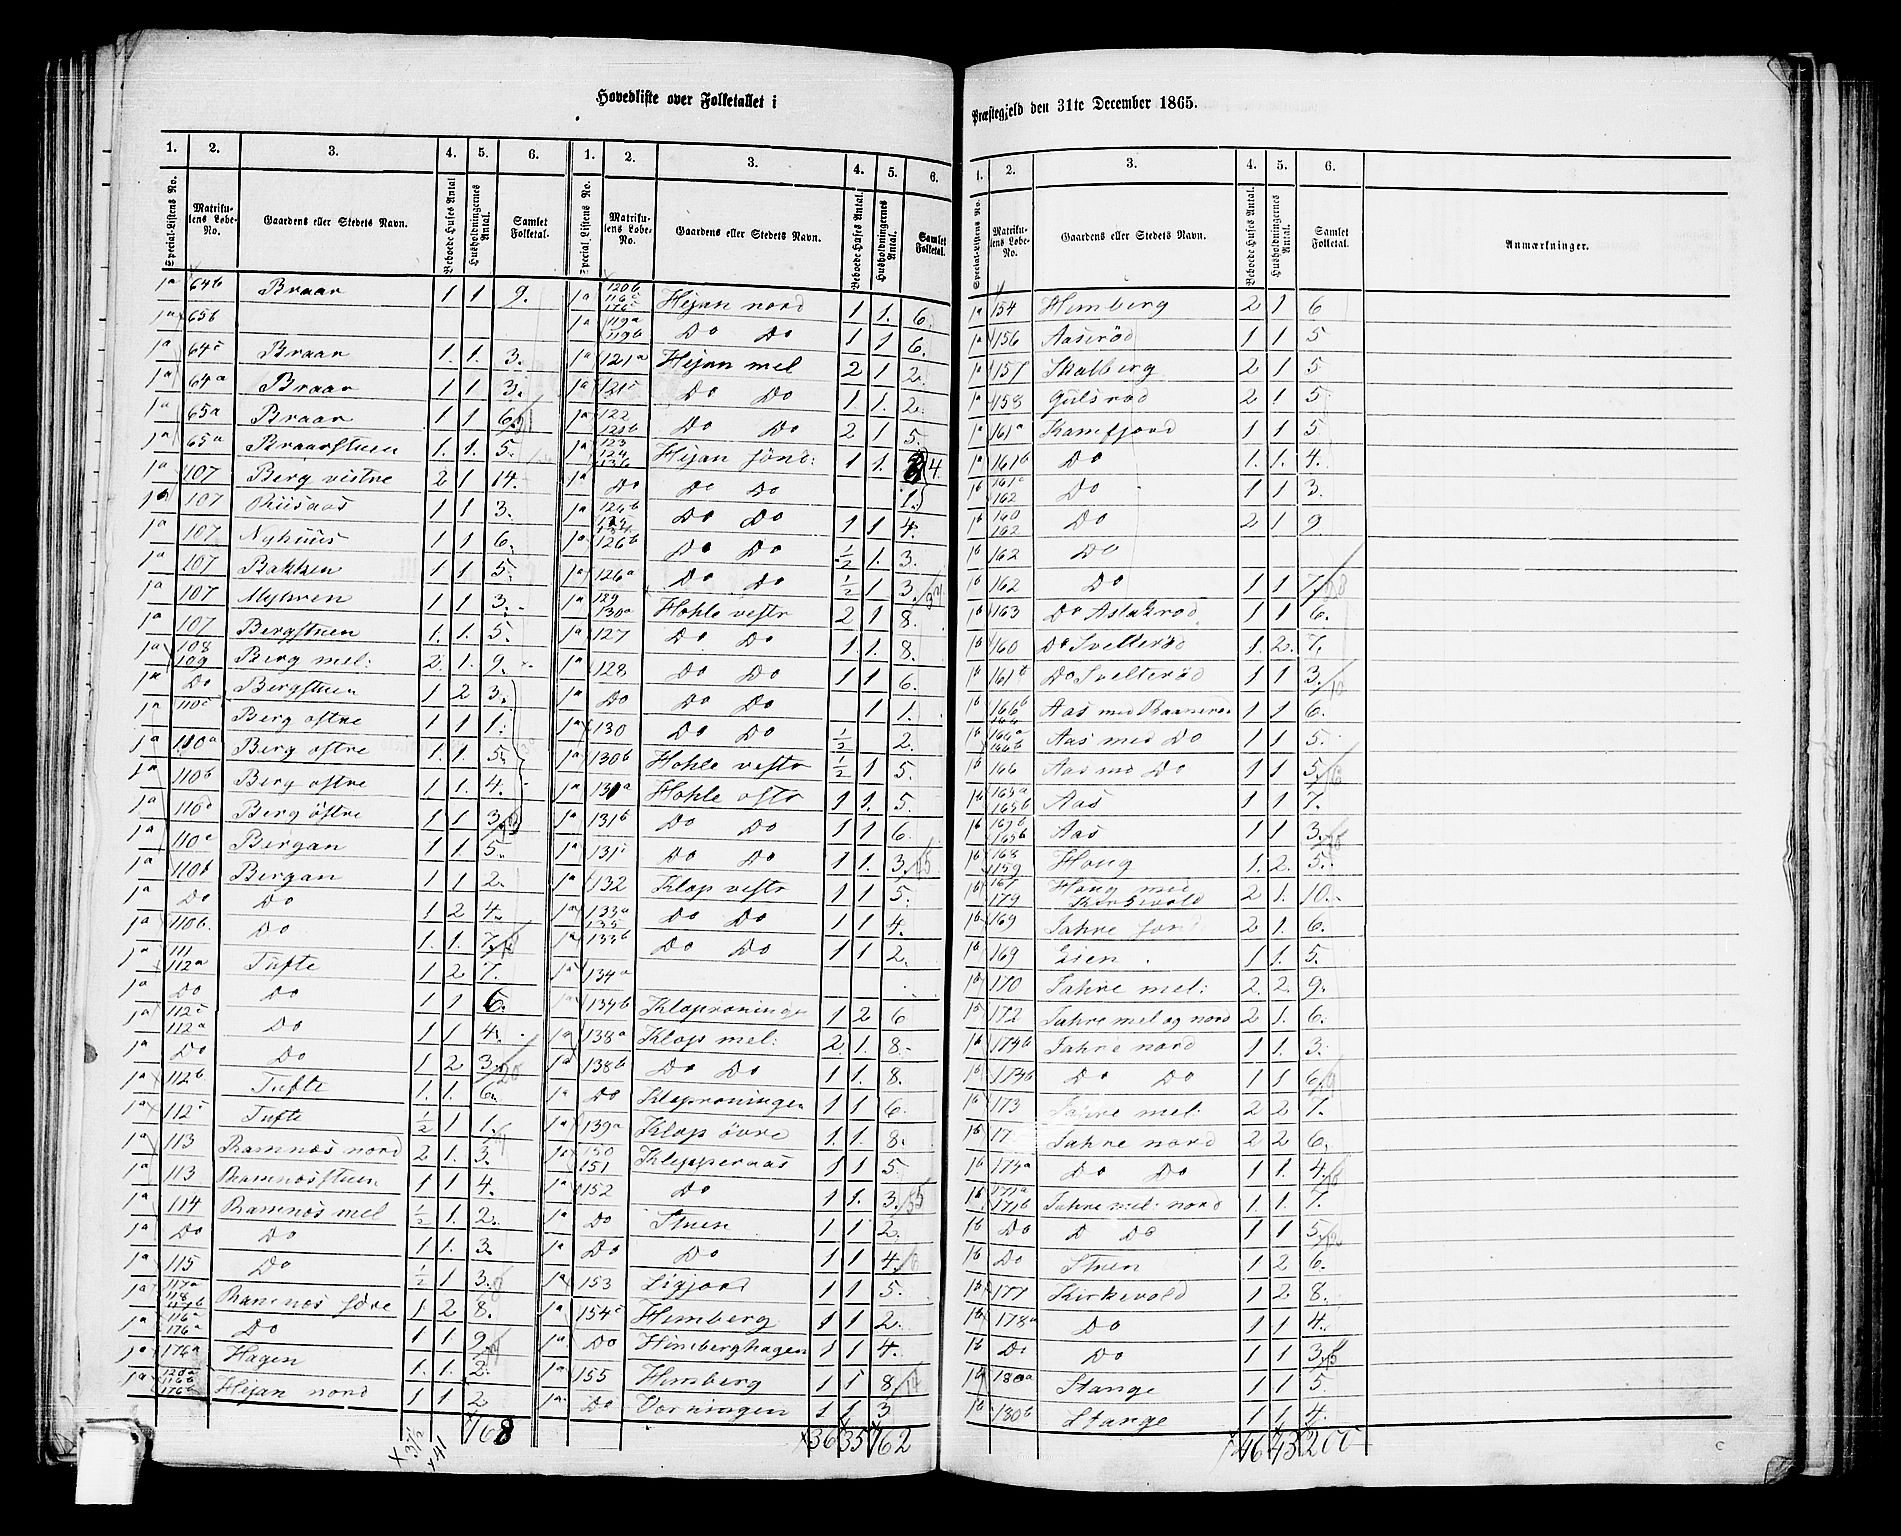 Hovedliste over Folketallet i
1. 2. 3. 4. 5. 6. 1. 2. 3. 4. 5. 6.
Special-Listens No. Matrikulens Løbe-No. Gaardens eller Stedets Navn. Beboede Huses Antal Husholdningernes Antal. Samlet Folketal. Special-Listens No. Matrikulens Løbe-No. Gaardens eller Stedets Navn. Beboede Huses Antal. Husholdningernes Antal. Samlet Folketal.
1a 64b Braar 1 1 9.
1a 65b
1a 64c Braar 1. 1. 3.
1a 64a Braar 1 1 3.
1a 65a Braar 1 1 6
1a 65a Braarstuen 1. 1. 5.
1a 107 Berg vestre 2 1 14.
107 Riisaas 1 1 3.
1a 107 Nyhuus 1 1 6.
1a 107 Bakken 1 1 5.
1a 107 Myhren 1 1 3.
1a 107 Bergstuen 1. 1. 5.
1a 108 109 Berg mel: 2. 1. 9.
1a Do Bergstuen 1 2 3.
1a 110c Berg østre 1 1 1.
1a 110a Berg østre 1. 1. 5.
1a 110b Berg østre 1 1. 4.
1a 110d Berg østre 1 1 3.
1a 110e Bergan 1 1. 5.
1a 110b Bergan 1 1 2.
1a Do Do 1 2 4.
1a 110b. Do 1 1. 7.
1a 111 112a Tufte 1 2 7.
1a Do Do 1 1 6.
1a 112c 112a Do 1 1 4.
1a Do Do 1 2 3.
1a 112b Tufte 1. 1. 6.
1a 112c Tufte ½ 1 1.
1a 113 Ramnæs nord 2 1. 3.
1a 113 Ramnæsstuen 1 1 4.
1a 114 Ramnæs mel ½ 1. 2.
1a Do Do 1 1. 3.
1a 115 Do ½ 1 3.
1a 117a 118 117b Ramnæs søre 1 2 8.
1a 116a 176a Do 1 1 9
1a 176a Hagen 1. 1. 2.
1a Hejan nord 1 1 2
168
1a 120b 116c 176c Hejan nord 1 1. 6.
1a 119a 119b Do Do 1 1 6.
1a 121a Hejan mel 2 1 2.
1a 121c Do Do 1 1. 2.
1a 122 121b Do Do 2 1 5.
1a 123 124 Hejan sönd: 1 1. 4.
1a Do Do Do 1.
1a 124b Do Do 1 1 4.
1a 126b Do Do ½ 1. 3.
1a 126a Do Do ½ 1 3.
1a 130a Hohle vestr 2 1 8.
1a 127 Do Do 1. 1. 8.
1a 128 Do Do 1 1 6.
1a Do Do Do 1 1.
1a 130 Do Do ½ 2.
1a 130b Hohle vestr ½ 1 5.
1a 131a Hohle østr 1 1. 5.
1a 131b Do Do 1 1 6.
1a 131c Do Do 1 1. 3.
1a 132 Klop vestr 1 1 5.
1a 133a 135 Do Do 1 1 4.
1a 133b Do Do 1 1 2.
1a 134a
134b Kloproningen 1 2 6
1a 138a Klop mel: 2. 1. 8.
1a 138b Do Do 1 1. 8.
1a Do Kloproningen 1 1 6.
1a 139a Klop övre 1. 1. 8.
1a 150 151 Klopperaas 1 1 5
1a 152 Do 1 1. 3.
1a Do Stuen 1 1 2.
1a Do Do 1 1 4.
1a 153 Ligjord 1 1 5.
1a 154c Himberg 1 1 2.
1a Do Himberghagen 1 1 4.
1a 155 Himberg 1 1 8
1a Do Vorningen 1 1 3
36 35 162
Præstegjeld den 31te December 1865.
1. 2. 3. 4. 5. 6.
Special-Listens No. Matrikulens Løbe-No. Gaardens eller Stedets Navn. Beboede Huses Antal. Husholdningernes Antal. Samlet Folketal. Anmærkninger.
1a 154 Himberg 2 1 6
1a 156 Aaserød 1 1 5
1a 157 Skalberg 2 1 5
1a 158 Gulsrød 2 1 5.
1a 161a Kamfjord 1 1 5
1a 161b Do 1. 1. 4.
1a 161a 162 Do 1 1 3.
1b 160 162 Do 2 1 9.
1b 162 Do
1b 162 Do 1 1 7.
1b 163 Do Aslakrød 1 1 6.
1b 160 Do Svelterød 1. 2. 7.
1b 161b Do Svelterød 1 1 3.
1b 166b Aas med 1 1 6.
1b 166b Aas med Do 1 1 5.
1b 166 Aas med Do 1 1 5.
1b 165a 165b Aas 1 1 7.
1b 165b Aas 1 1 3.
1b 168 159 Houg 1. 2. 5.
1b 167 179 Houg med Kirkevold 2 1. 10.
1b 169 Jahre sönd 2 1. 6.
1b 169 Lien 1 1. 5.
1b 170 Jahre mel: 2. 2. 9.
1b 172 Jahre mel og nord 2 1. 6.
1b 174b Jahre nord 1 1. 3.
1b 174b Do Do 1 1 6.
1b 173 Jahre mel: 2 2 7.
1b 17 Jahre nord 2 2 6.
1b 174a Do Do 1 1. 4.
1b 171a 171b Jahre mel: nord 1. 1. 7.
1b Do D Do 1 1 5.
1b Do Stuen 1 2 6.
1b 177 Kirkevold 1 2 8.
1b 178a Do 1 1 4.
1b Do Do 1 1 3.
1b 180a Stange 1 1 5.
1b 130b Stange 1 1. 4.
46 43 200